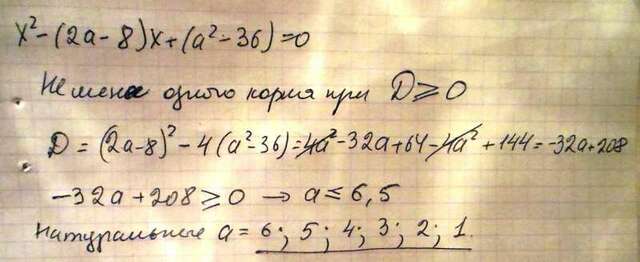 x² - (2a - 8)x + (a² - 36) = 0
Не менее одного корня при D ≥ 0
D = (2a-8)² - 4(a²-36) = 4a² - 32a + 64 - 4a² + 144 = -32a + 208
-32a + 208 ≥ 0 → a ≤ 6,5
Натуральные a = 6; 5; 4; 3; 2; 1.